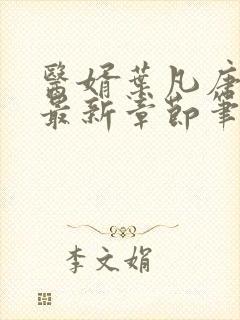 醫婿葉凡唐
最新章節筆
李文娟